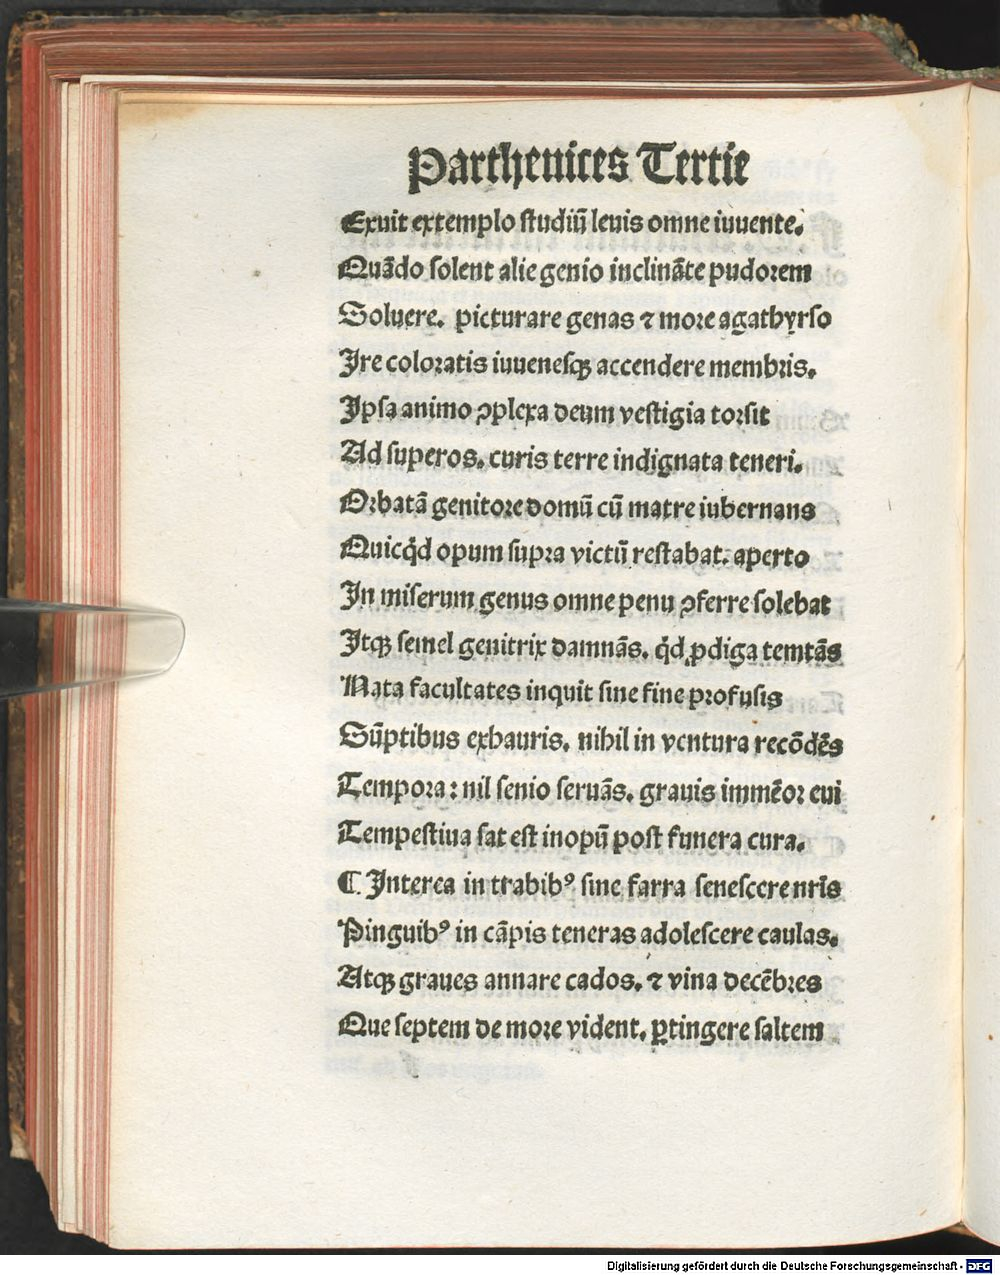 Parthenices Tertie
Exuit extemplo studiũ leuis omne iuuente.
Quãdo solent alie genio inclinãte pudorem
Soluere. picturare genas ⁊ more agathyrso
Ire coloratis iuuenesqꝫ accendere membris.
Ipsa animo ꝯplexa deum vestigia torsit
Ad superos. curis terre indignata teneri.
Orbatã genitore domũ cũ matre iubernans
Quicq̃d opum supra victũ restabat. aperto
In miserum genus omne penu ꝯferre solebat
Itqꝫ semel genitrix damnãs. q̃d ꝓdiga temtãs
Nata facultates inquit sine fine profusis
Sũptibus exhauris. nihil in ventura recõdẽs
Tempora: nil senio seruãs. grauis immẽor eui
Tempestiua sat est inopũ post funera cura.
¶ Interea in trabibꝰ sine farra senescere nr̃is
Pinguibꝰ in cãpis teneras adolescere caulas.
Atqꝫ graues annare cados. ⁊ vina decẽbres
Que septem de more vident. ꝑtingere saltem
Digitalisierung gefördert durch die Deutsche Forschungsgemeinschaft - DFG